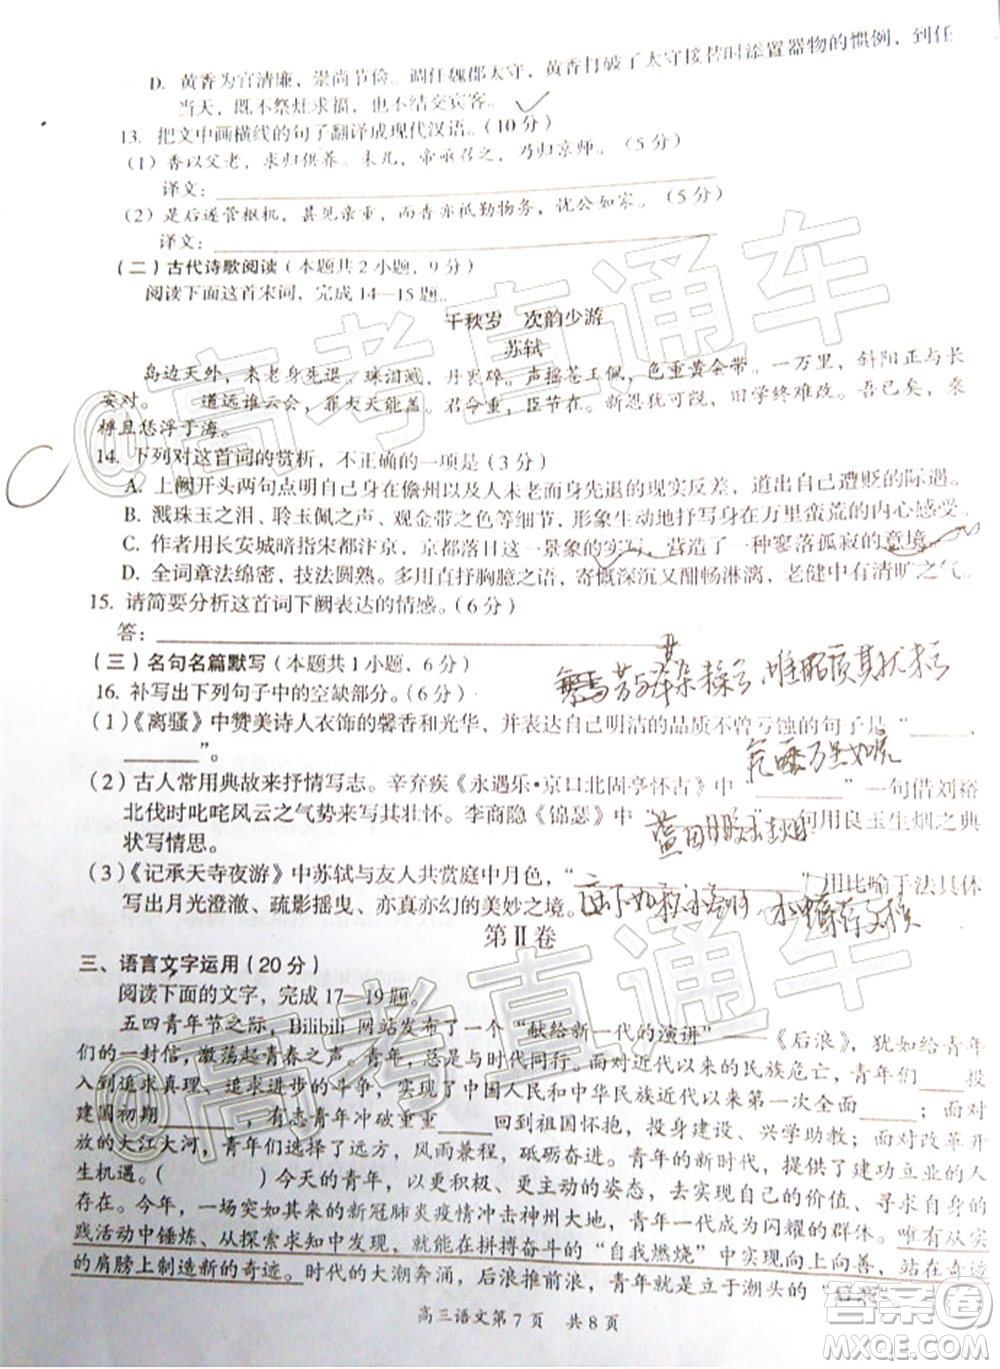 D. 黄香为官清廉，崇尚节俭。调任魏郡太守，黄香打破了太守接替时添置器物的惯例，到任
当天，既不祭灶求福，也不结交宾客。
13. 把文中画横线的句子翻译成现代汉语。（10 分）
（1）香以父老，求归供养。未几，帝亟召之，乃归京师。（5 分）
译文：
（2）是后遂管枢机，甚见亲重，而香亦祗勤物务，忧公如家。（5 分）
译文：
（二）古代诗歌阅读（本题共 2 小题，9 分）
阅读下面这首宋词，完成 14—15 题。
千秋岁　次韵少游
苏轼
岛边天外，未老身先退。珠泪溅，丹衷碎。声摇苍玉佩，色重黄金带。一万里，斜阳正与长
安对。　　道远谁云会，罪大天能盖。君命重，臣节在。新恩犹可觊，旧学终难改。吾已矣，乘
桴且恁浮于海。
14. 下列对这首词的赏析，不正确的一项是（3 分）
A. 上阕开头两句点明自己身在儋州以及人未老而身先退的现实反差，道出自己遭贬的际遇。
B. 溅珠玉之泪、聆玉佩之声、观金带之色等细节，形象生动地抒写身在万里蛮荒的内心感受。
C. 作者用长安城暗指宋都汴京，京都使这一景象的实写，营造了一种寥落孤寂的意境。
D. 全词章法绵密，技法圆熟。直抒胸臆之语，寄慨深沉又酣畅淋漓，老健中有清旷之气。
15. 请简要分析这首词下阕表达的情感。（6 分）
答：
（三）名句名篇默写（本题共 1 小题，6 分）
芳与泽其杂糅兮，唯昭质其犹未亏
16. 补写出下列句子中的空缺部分。（6 分）
（1）《离骚》中赞美诗人衣饰的馨香和光华，并表达自己明洁的品质不曾亏蚀的句子是“　，
　”。
气吞万里如虎
（2）古人常用典故来抒情写志。辛弃疾《永遇乐·京口北固亭怀古》中“　”一句借刘裕
北伐时叱咤风云之气势来抒写对英雄的怀想。李商隐《锦瑟》中“蓝田日暖玉生烟”一句用良玉生烟之典
状写情思。
（3）《记承天寺夜游》中苏轼与友人共赏庭中月色，“庭下如积水空明，水中藻荇交横”用比喻手法具体
写出月光澄澈、疏影摇曳、亦真亦幻的美妙之境。
第 Ⅱ 卷
三、语言文字运用（20 分）
阅读下面的文字，完成 17—19 题。
五四青年节之际，Bilibili 网站发布了一个“献给新一代的演讲”——《后浪》，犹如给青年
们的一封信，激荡起青春之声。青年，面对近代以来的民族危亡，青年们　投
入到追求真理、追求进步的斗争，写下了中国人民和中华民族近代以来第一次全面　；面对
建国初期　，有志青年冲破重重　回到故土，投身建设、兴学助教；面对改革开
放的大江大河，青年们用拼搏、砥砺、奋进挺立潮头。青年的新时代，提供了建功立业的人
生机遇。（　）今天的青年，以更积极、更主动的姿态，去实现自己的价值、寻求自身的
存在。今年，一场突如其来的新冠肺炎疫情冲击神州大地，青年一代成为闪耀的群体。唯有从实
践活动中锤炼、从探索求知中发现，就能在拼搏奋斗的“自我燃烧”中实现向上向善，在命运
的肩膀上制造新的奇迹。时代的大潮奔涌，后浪推前浪，青年就是立于潮头的
高三语文第 7 页　共 8 页
@高考直通车
@高考直通车
答案圈
MXQE.COM